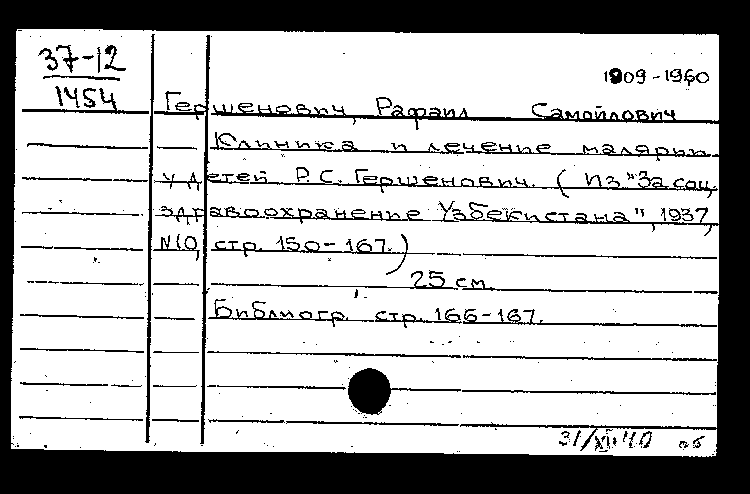 37-12
1454
1909-1960
Гершенович, Рафаил Самойлович
Клиника и лечение малярии
у детей Р.С. Гершенович. (Из "За соц.
здравоохранение Узбекистана", 1937,
N10, стр. 150-167.)
25 см.
Библиогр. стр. 166-167.
31/XII 40 об